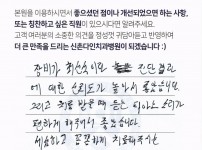 본원을 이용하시면서 좋으셨던 점이나 개선되었으면 하는 사항,
또는 칭찬하고 싶은 직원이 있으시다면 알려주세요.
고객 여러분의 소중한 의견을 정성껏 귀담아듣고 반영하여
더 큰 만족을 드리는 신촌다인치과병원이 되겠습니다 :)
장비가 최신식이라 진단 결과
에 대한 신뢰도가 높아서 좋았습니다.
그리고 치료 받을 때 듣는 피아노 소리가
편하게 해줘서 좋았습니다.
세심하고 꼼꼼하게 치료해주시는